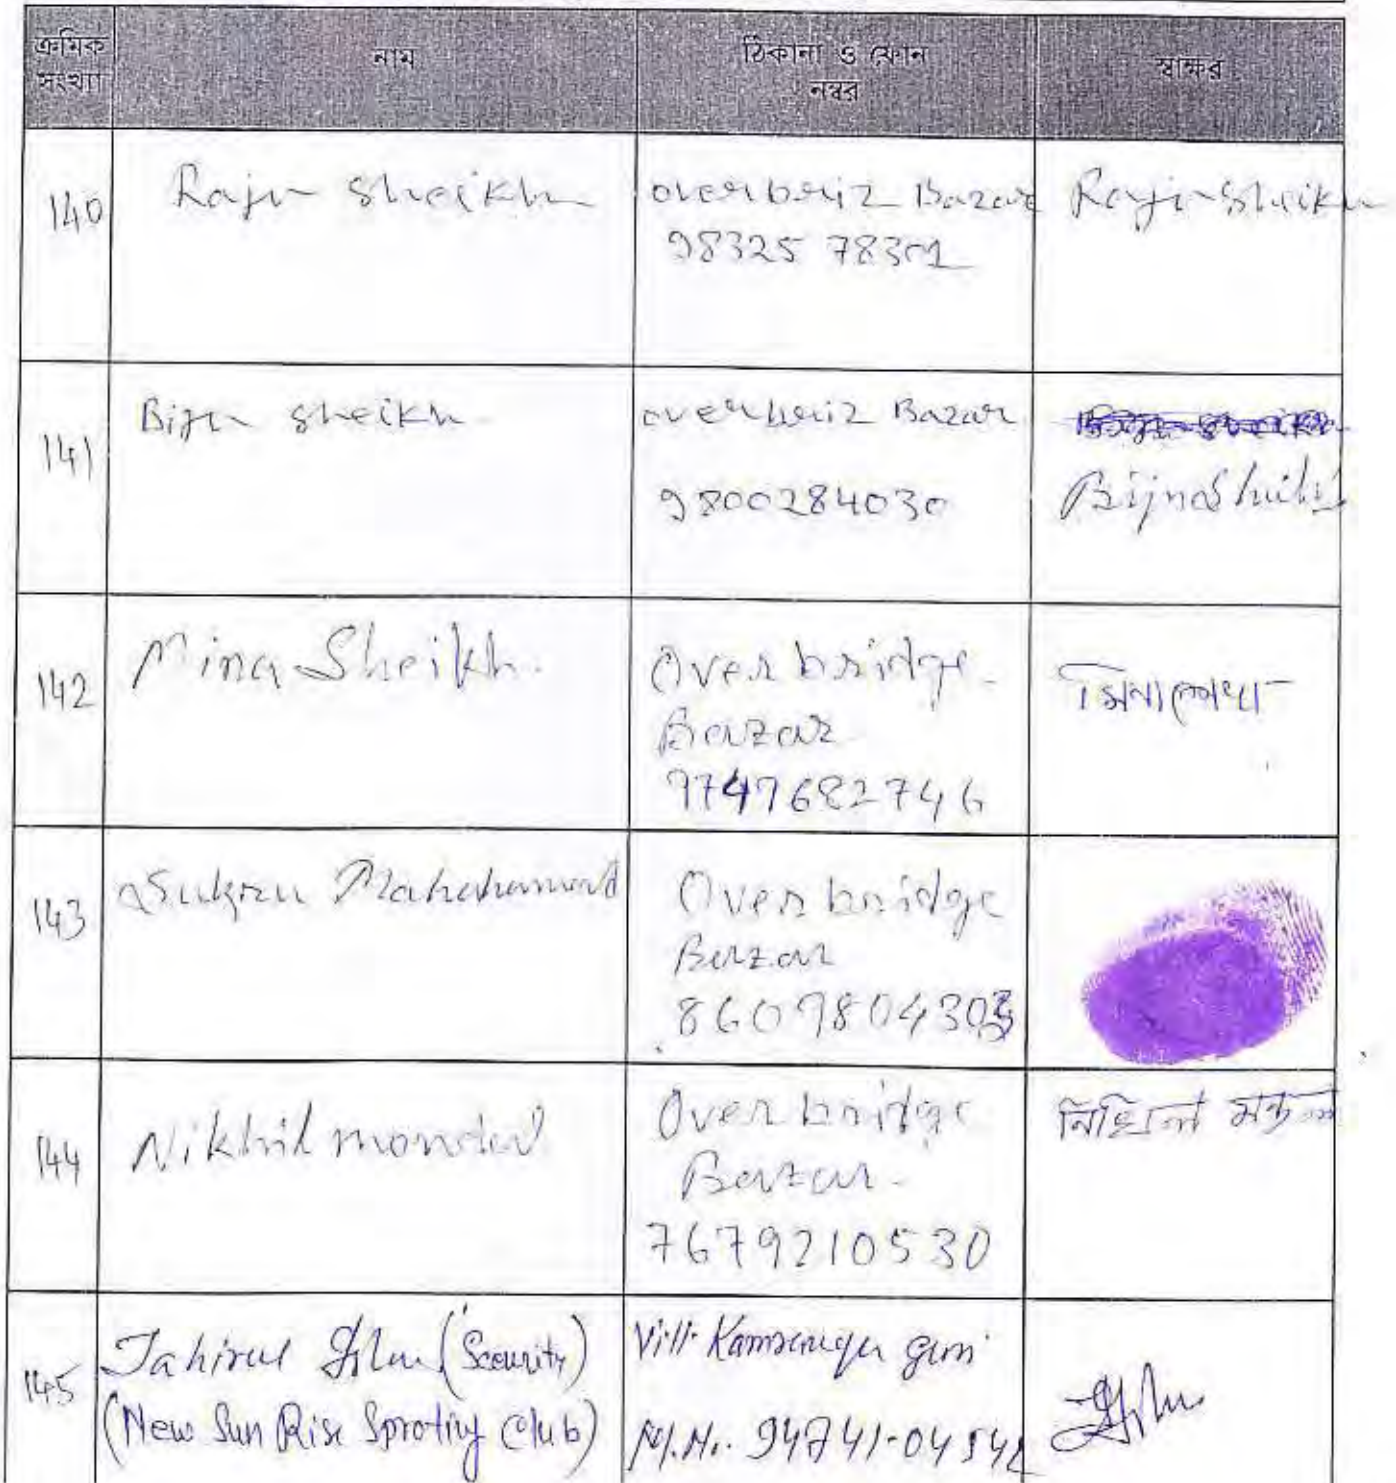 ক্রমিক সংখ্যা
নাম
ঠিকানা ও ফোন নম্বর
স্বাক্ষর
140
Raju Sheikh
overbriz Bazar
98325 78301
Raju Sheikh
141
Biju Sheikh
overbriz Bazar
9800284030
Biju Sheikh
142
Mina Sheikh.
Over bridge
Bazar
9747682746
মিনা শেখ
143
Sukru Mahahammad
Over bridge
Bazar
8609804303
144
Nikhil mondal
Over bridge
Bazar
7679210530
নিখিল মন্ডল
145
Jahirul Islam (Security)
(New Sun Rise Sproting Club)
Vill-
M.N. 94741-04542